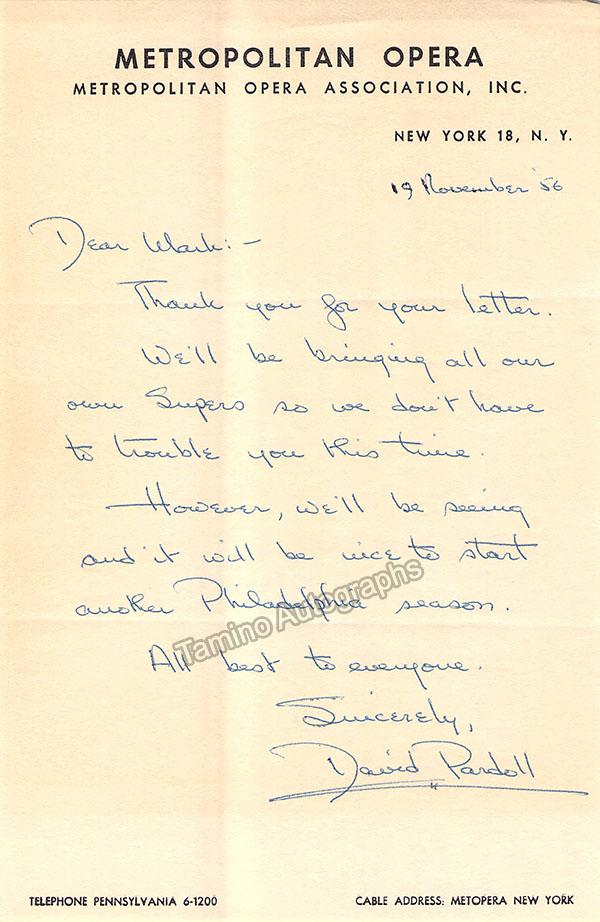 METROPOLITAN OPERA
METROPOLITAN OPERA ASSOCIATION, INC.
NEW YORK 18, N. Y.
19 November '56
Dear Mark:-
Thank you for your letter.
We'll be bringing all our
own Supers so we don't have
to trouble you this time.
However, we'll be seeing
and it will be nice to start
another Philadelphia season.
Tamino Autographs
All best to everyone.
Sincerely,
David Pardoll
TELEPHONE PENNSYLVANIA 6-1200 CABLE ADDRESS: METOPERA NEW YORK